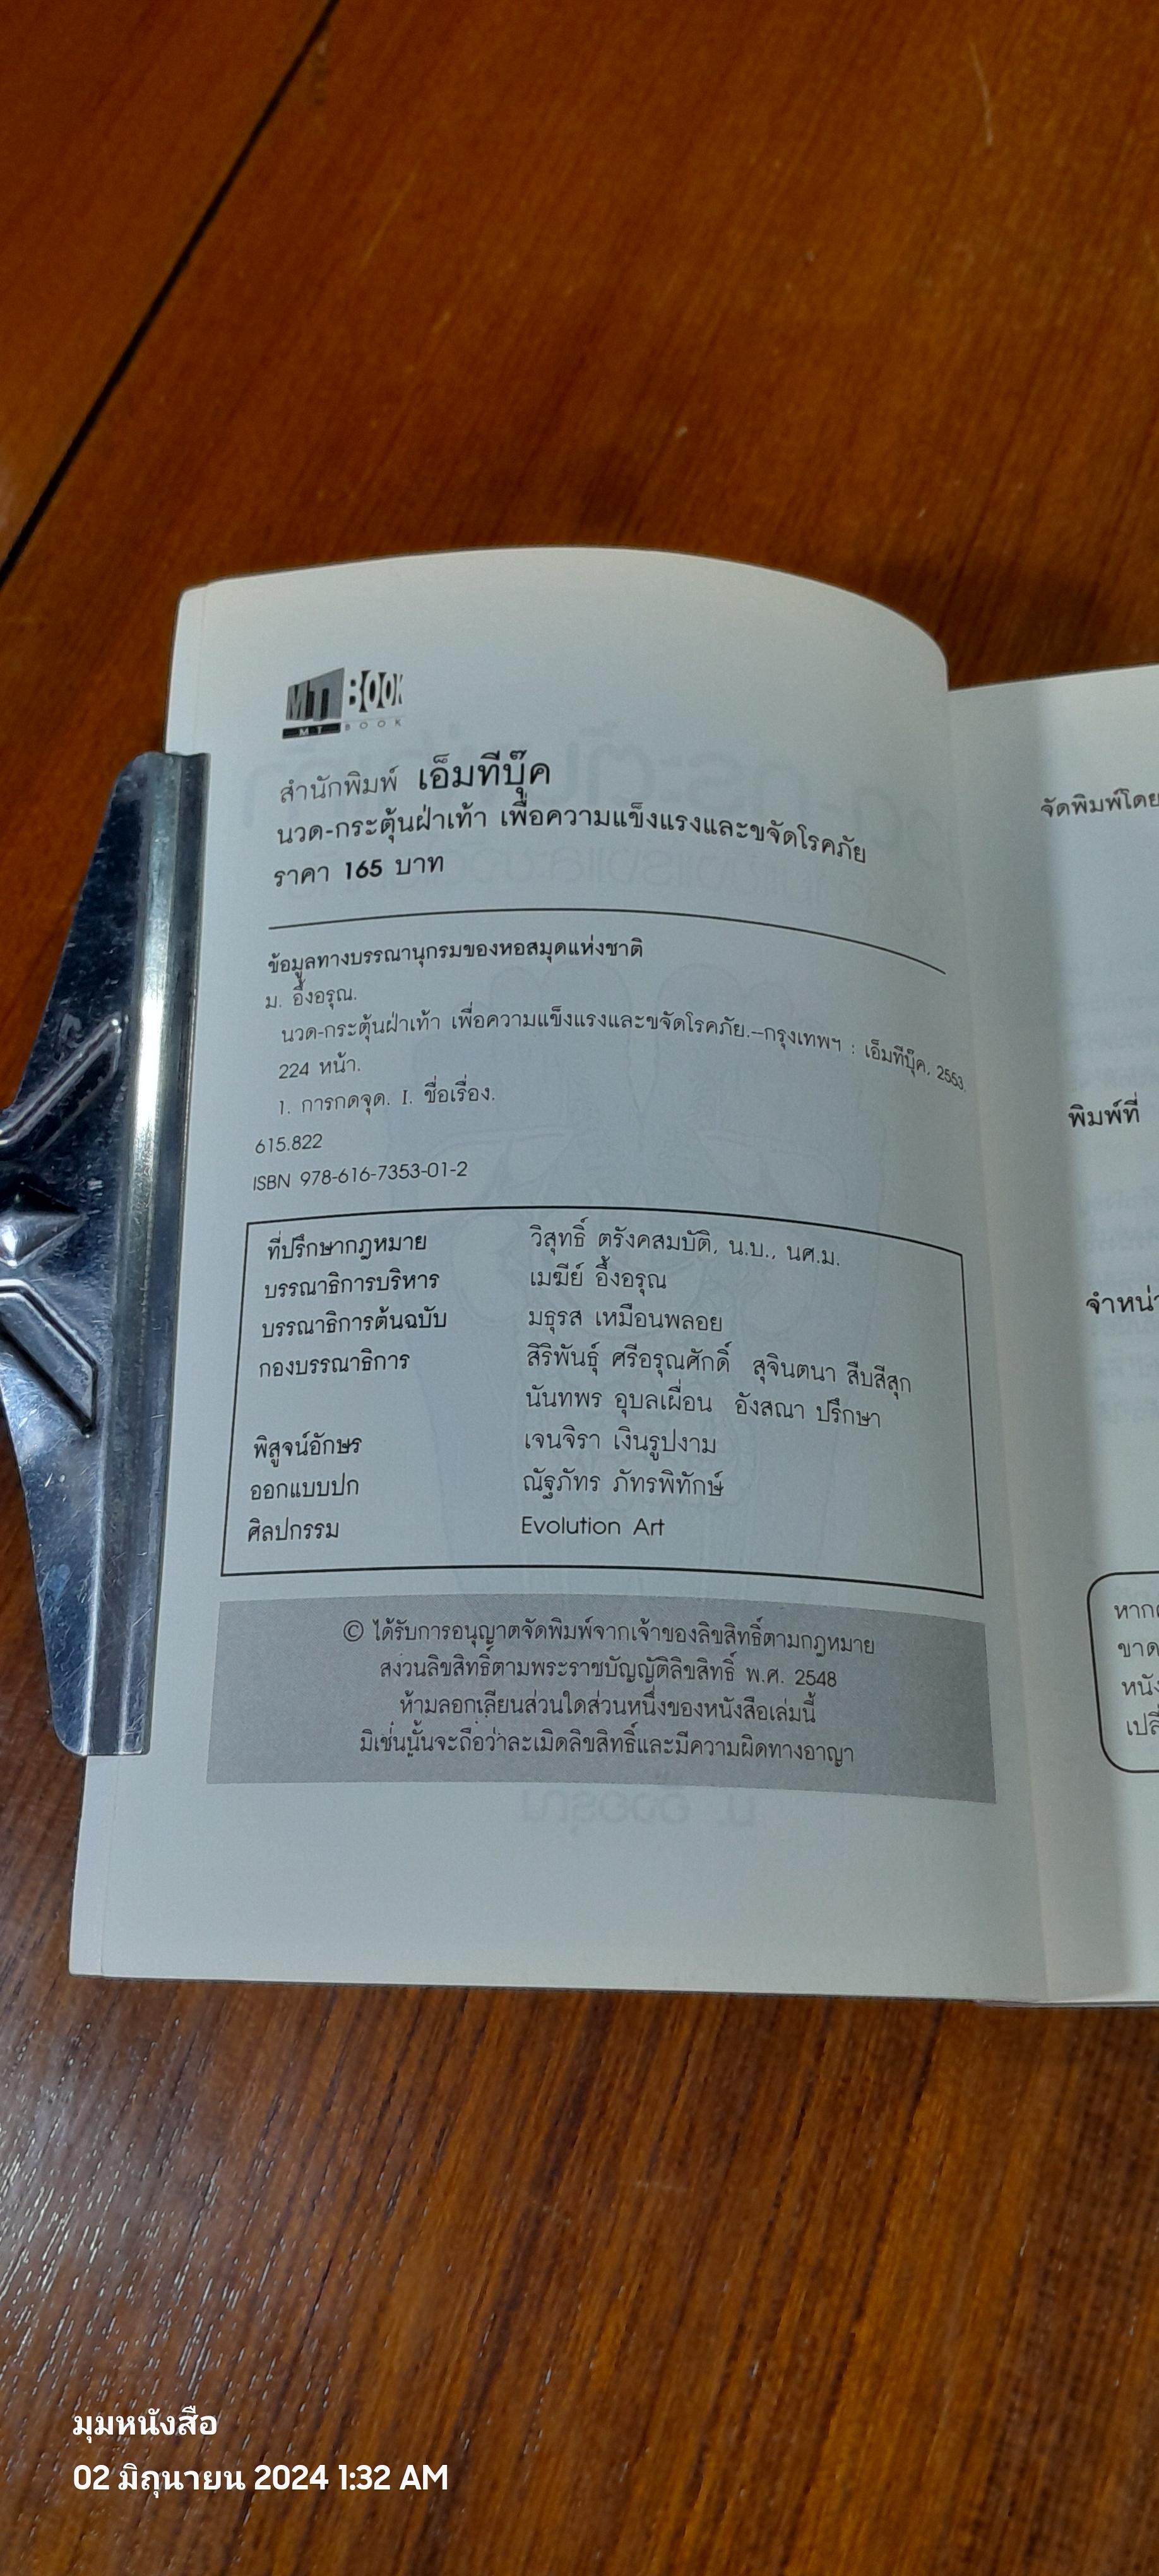 MT BOOK
MT BOOK
สำนักพิมพ์ เอ็มทีบุ๊ค
นวด-กระตุ้นฝ่าเท้า เพื่อความแข็งแรงและขจัดโรคภัย
ราคา 165 บาท
ข้อมูลทางบรรณานุกรมของหอสมุดแห่งชาติ
ม. อึ้งอรุณ.
นวด-กระตุ้นฝ่าเท้า เพื่อความแข็งแรงและขจัดโรคภัย.--กรุงเทพฯ : เอ็มทีบุ๊ค, 2553.
224 หน้า.
1. การกดจุด. I. ชื่อเรื่อง.
615.822
ISBN 978-616-7353-01-2
ที่ปรึกษากฎหมาย วิสุทธิ์ ตรังคสมบัติ, น.บ., นศ.ม.
บรรณาธิการบริหาร เมฆีย์ อึ้งอรุณ
บรรณาธิการต้นฉบับ มธุรส เหมือนพลอย
กองบรรณาธิการ สิริพันธุ์ ศรีอรุณศักดิ์ สุจินตนา สืบสีสุก
นันทพร อุบลเผื่อน อังสณา ปรึกษา
พิสูจน์อักษร เจนจิรา เงินรูปงาม
ออกแบบปก ณัฐภัทร ภัทรพิทักษ์
ศิลปกรรม Evolution Art
© ได้รับการอนุญาตจัดพิมพ์จากเจ้าของลิขสิทธิ์ตามกฎหมาย
สงวนลิขสิทธิ์ตามพระราชบัญญัติลิขสิทธิ์ พ.ศ. 2548
ห้ามลอกเลียนส่วนใดส่วนหนึ่งของหนังสือเล่มนี้
มิเช่นนั้นจะถือว่าละเมิดลิขสิทธิ์และมีความผิดทางอาญา
จัดพิมพ์โดย
พิมพ์ที่
ขาด
มุมหนังสือ
02 มิถุนายน 2024 1:32 AM